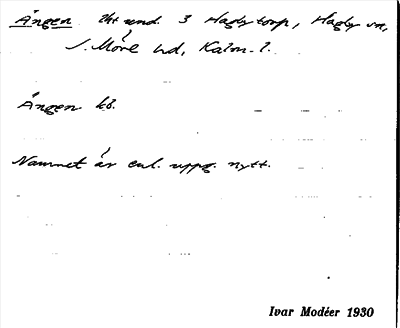 Ängen lht und. 3 Hagbytorp, Hagby sn,
S. Möre hd, Kalm. l.
Ängen kb.
Namnet är enl. uppg. nytt.
Ivar Modéer 1930